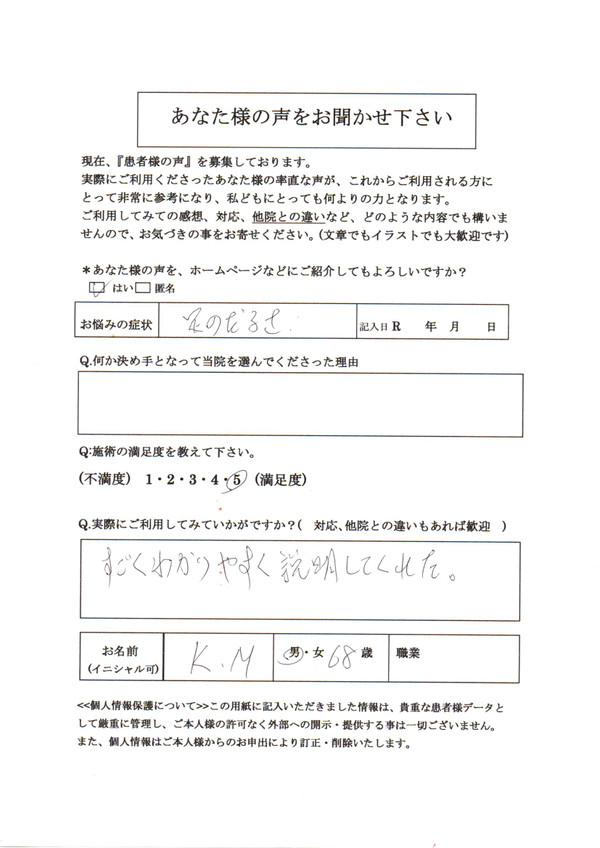 あなた様の声をお聞かせ下さい
現在、『患者様の声』を募集しております。
実際にご利用くださったあなた様の率直な声が、これからご利用される方に
とって非常に参考になり、私どもにとっても何よりの力となります。
ご利用してみての感想、対応、他院との違いなど、どのような内容でも構いま
せんので、お気づきの事をお寄せください。(文章でもイラストでも大歓迎です)
＊あなた様の声を、ホームページなどにご紹介してもよろしいですか？
☑はい□匿名
お悩みの症状 足のだるさ. 記入日 R 年 月 日
Q.何か決め手となって当院を選んでくださった理由
Q:施術の満足度を教えて下さい。
(不満度) 1・2・3・4・5 (満足度)
Q.実際にご利用してみていかがですか？( 対応、他院との違いもあれば歓迎 )
すごくわかりやすく説明してくれた。
お名前 K.M 男・女 68 歳 職業
(イニシャル可)
<<個人情報保護について>>この用紙に記入いただきました情報は、貴重な患者様データと
して厳重に管理し、ご本人様の許可なく外部への開示・提供する事は一切ございません。
また、個人情報はご本人様からのお申出により訂正・削除いたします。